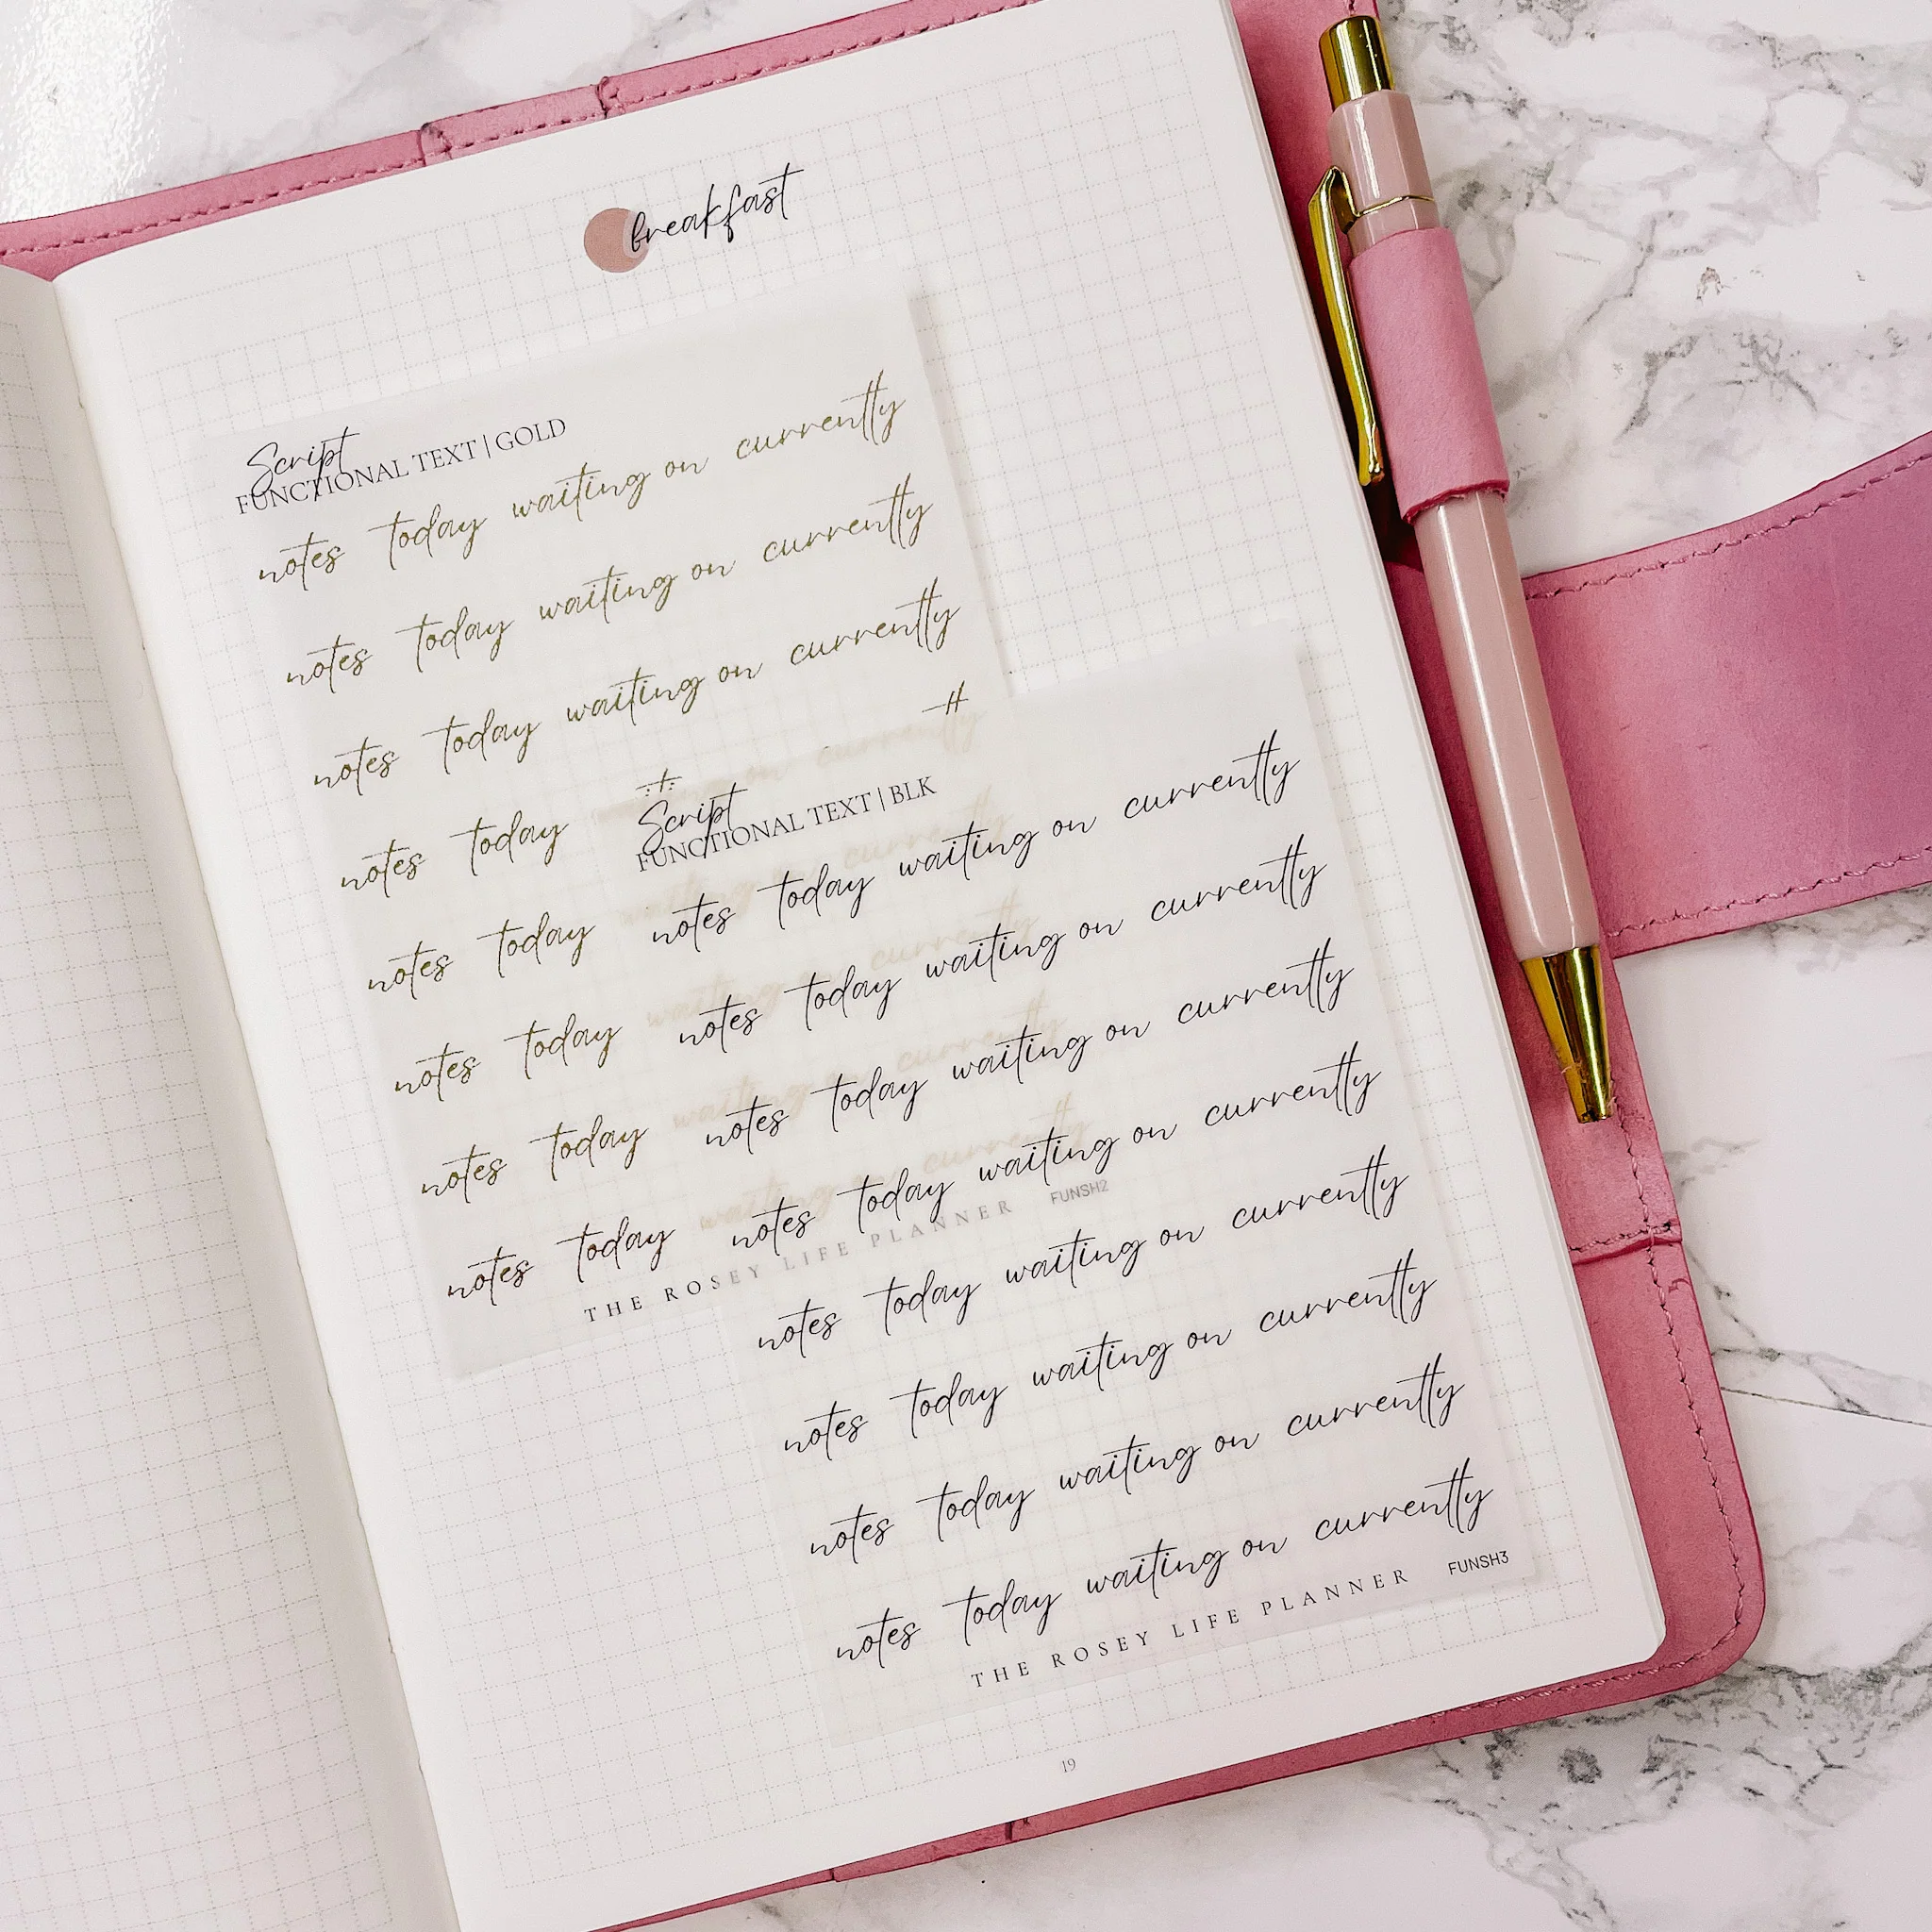 breakfast
Script
FUNCTIONAL TEXT | GOLD
notes today waiting on currently
notes today waiting on currently
notes today waiting on currently
notes today
notes today
notes today
notes today
notes today
THE ROSEY LIFE PLANNER FUNSH2
Script
FUNCTIONAL TEXT | BLK
notes today waiting on currently
notes today waiting on currently
notes today waiting on currently
notes today waiting on currently
notes today waiting on currently
notes today waiting on currently
notes today waiting on currently
notes today waiting on currently
THE ROSEY LIFE PLANNER FUNSH3
19